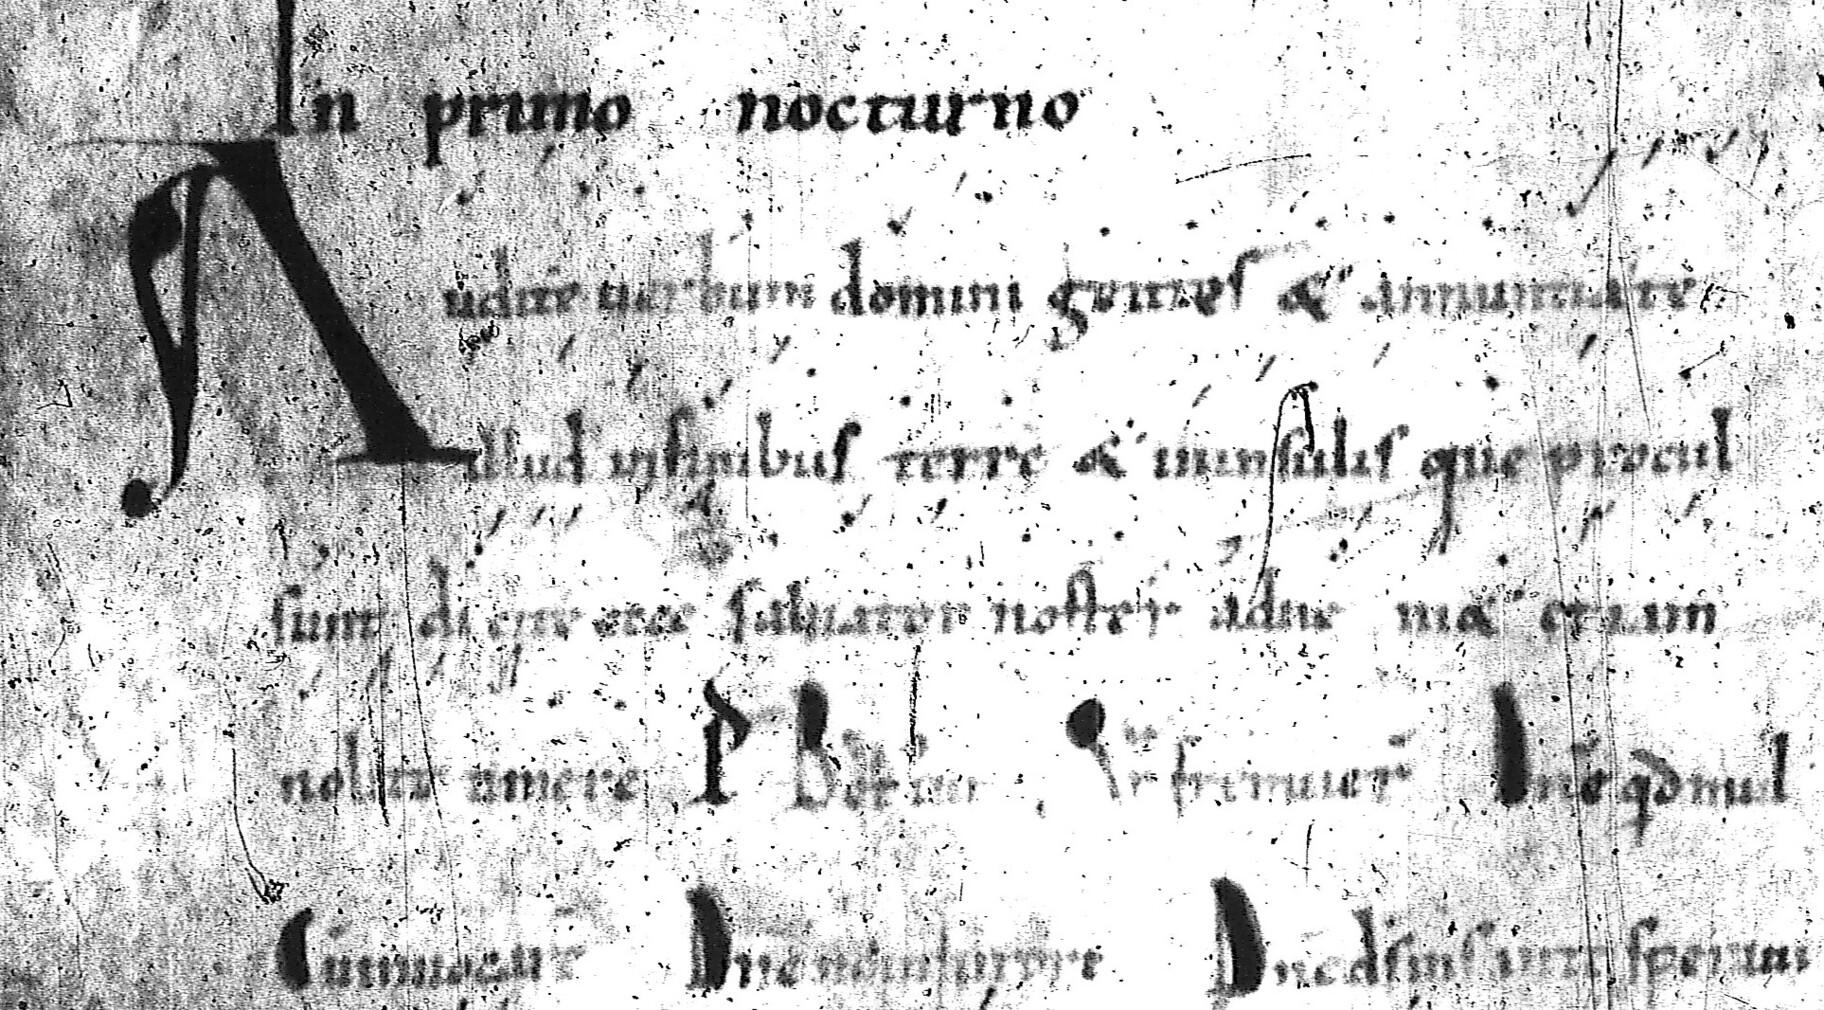 In primo nocturno
Audite uerbum domini gentes & annuntiate
illud in finibus terre & in insulis que procul
sunt dicite ecce saluator noster adue n& et iam
nolite timere P B
Quare fremuer Dne qd mul
Cum inuocare Dne ne in furore Dne ds ms in te speraui